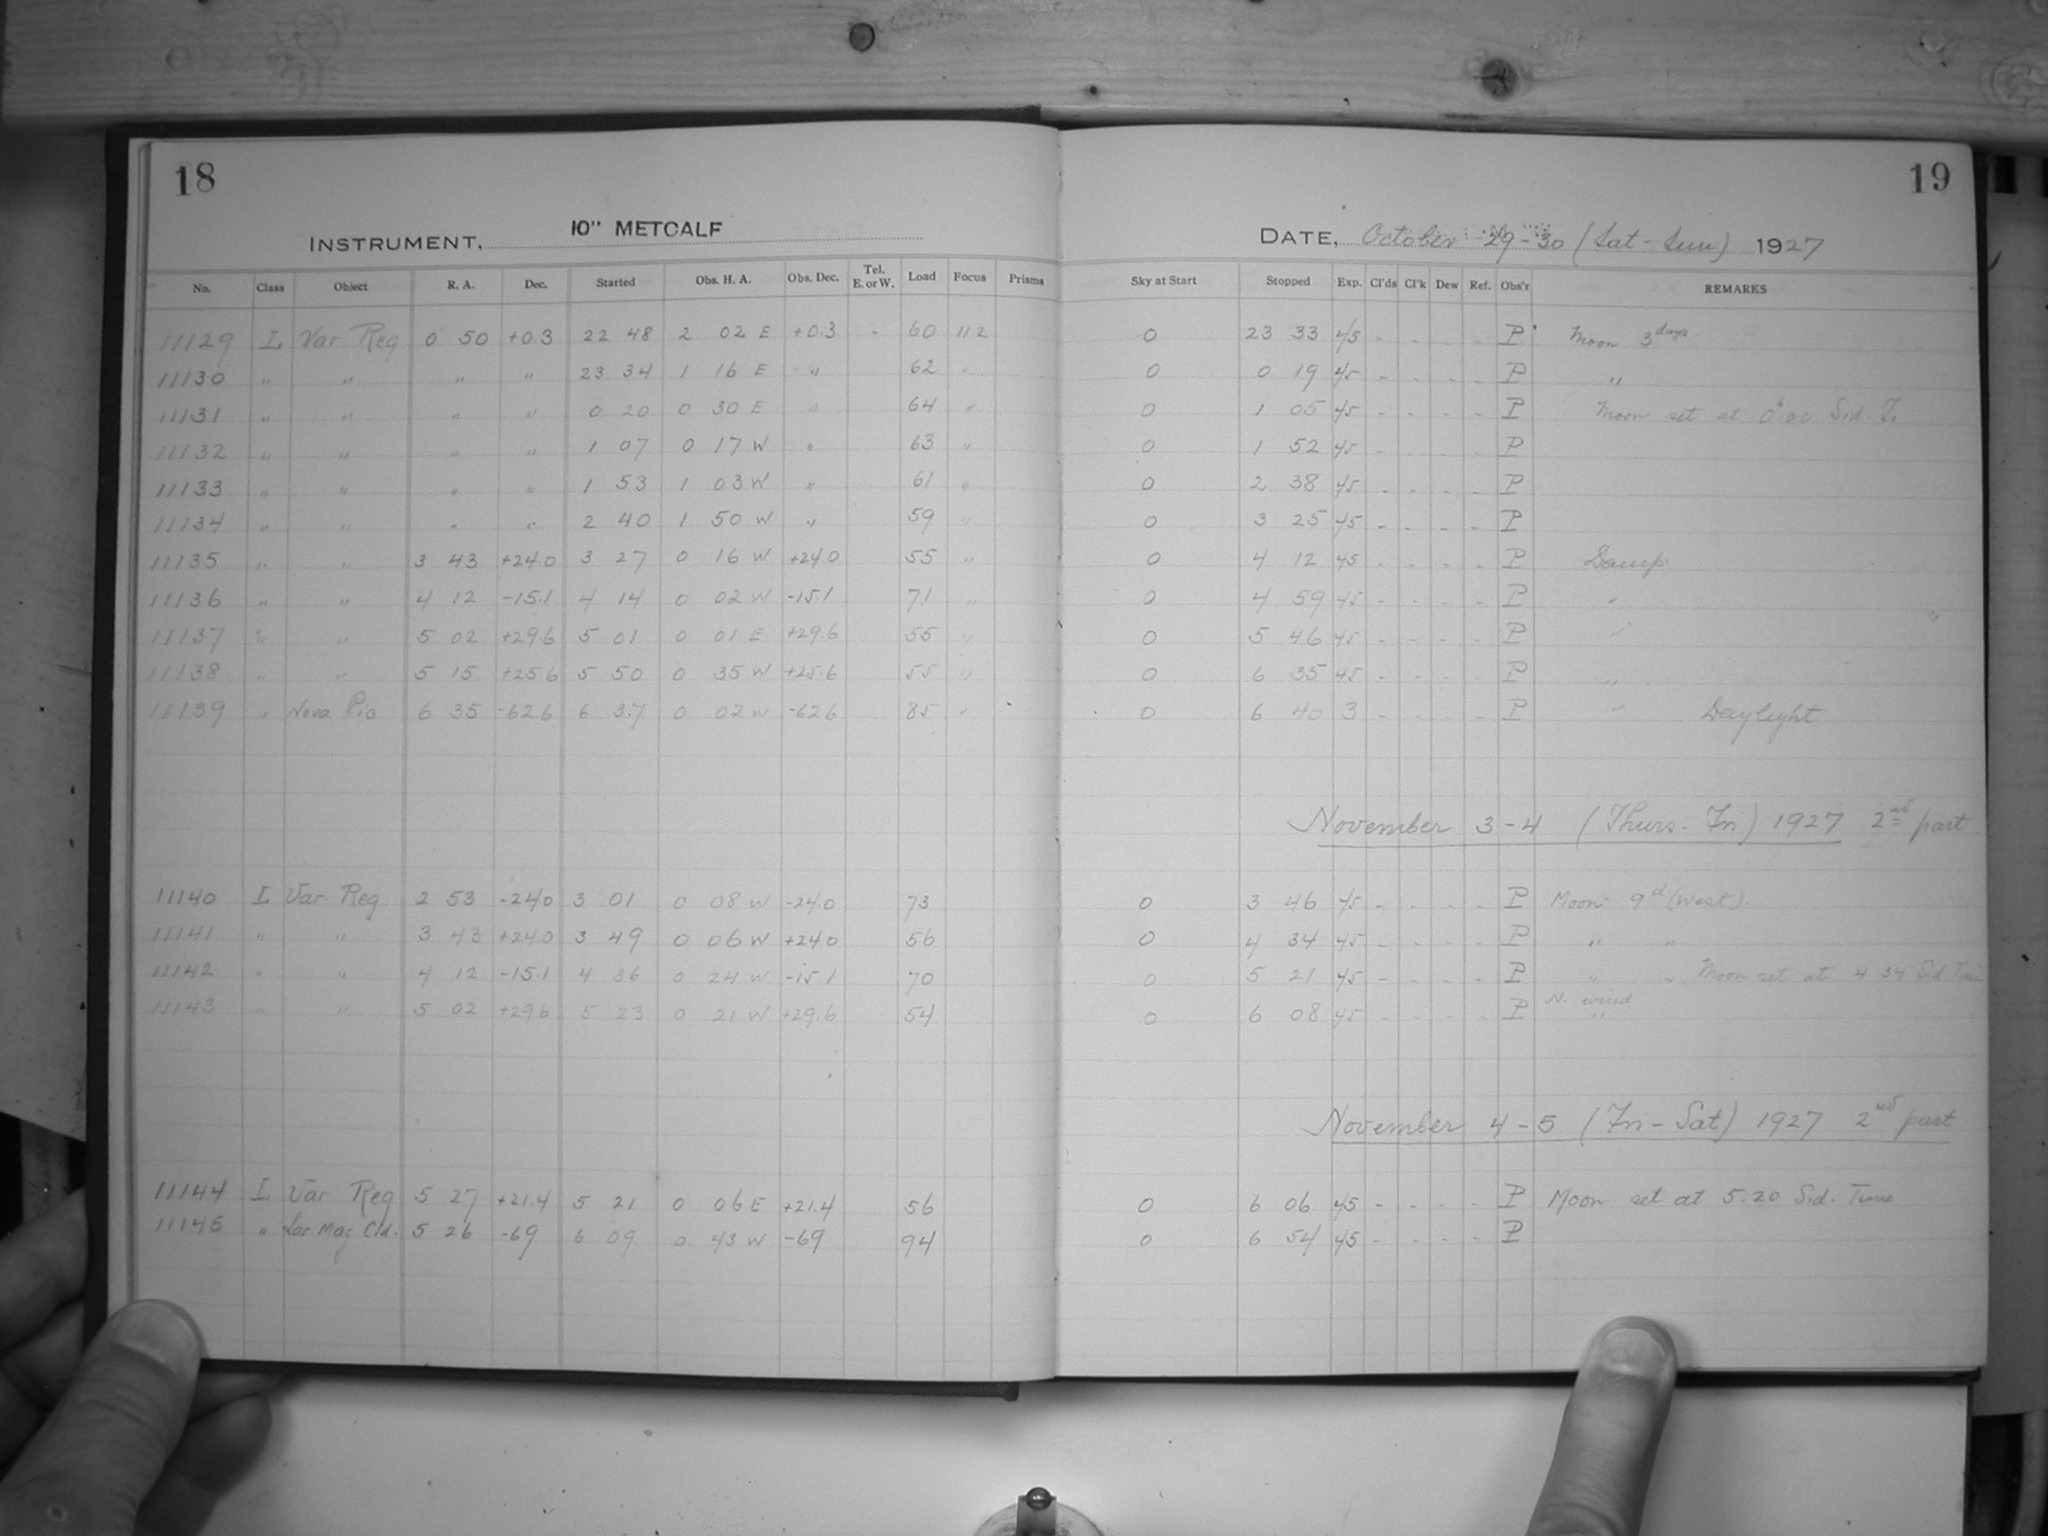 18
19
INSTRUMENT, 10" METCALF
DATE, October 29-30 (Sat-Sun) 1927
No. Class Object R. A. Dec. Started Obs. H. A. Obs. Dec. Tel. E. or W. Load Focus Prisms Sky at Start Stopped Exp. Cl'ds Cl'k Dew Ref. Obs'r REMARKS
11129 I Var Reg 0 50 +0.3 22 48 2 02 E +0.3 - 60 112 0 23 33 45 - - - - P Moon 3 days
11130 " " " " 23 34 1 16 E " 62 " 0 0 19 45 - - - - P "
11131 " " " " 0 20 0 30 E " 64 " 0 1 05 45 - - - - P Moon set at 0h00 Sid. T.
11132 " " " " 1 07 0 17 W " 63 " 0 1 52 45 - - - - P
11133 " " " " 1 53 1 03 W " 61 " 0 2 38 45 - - - - P
11134 " " " " 2 40 1 50 W " 59 " 0 3 25 45 - - - - P
11135 " " 3 43 +24.0 3 27 0 16 W +24.0 55 " 0 4 12 45 - - - - P Damp
11136 " " 4 12 -15.1 4 14 0 02 W -15.1 71 " 0 4 59 45 - - - - P "
11137 " " 5 02 +29.6 5 01 0 01 E +29.6 55 " 0 5 46 45 - - - - P "
11138 " " 5 15 +25.6 5 50 0 35 W +25.6 55 " 0 6 35 45 - - - - P "
11139 " Nova Pic 6 35 -62.6 6 37 0 02 W -62.6 85 " 0 6 40 3 - - - - P " Daylight
November 3-4 (Thurs-Fri) 1927 2nd part
11140 I Var Reg 2 53 -24.0 3 01 0 08 W -24.0 73 0 3 46 45 - - - - P Moon 9d (West).
11141 " " 3 43 +24.0 3 49 0 06 W +24.0 56 0 4 34 45 - - - - P " "
11142 " " 4 12 -15.1 4 36 0 24 W -15.1 70 0 5 21 45 - - - - P " " Moon set at 4 34 Sid. Time
11143 " " 5 02 +29.6 5 23 0 21 W +29.6 54 0 6 08 45 - - - - P N. wind "
November 4-5 (Fri-Sat) 1927 2nd part
11144 I Var Reg 5 27 +21.4 5 21 0 06 E +21.4 56 0 6 06 45 - - - - P Moon set at 5.20 Sid. Time
11145 " Lar Mag Cld. 5 26 -69 6 09 0 43 W -69 94 0 6 54 45 - - - - P